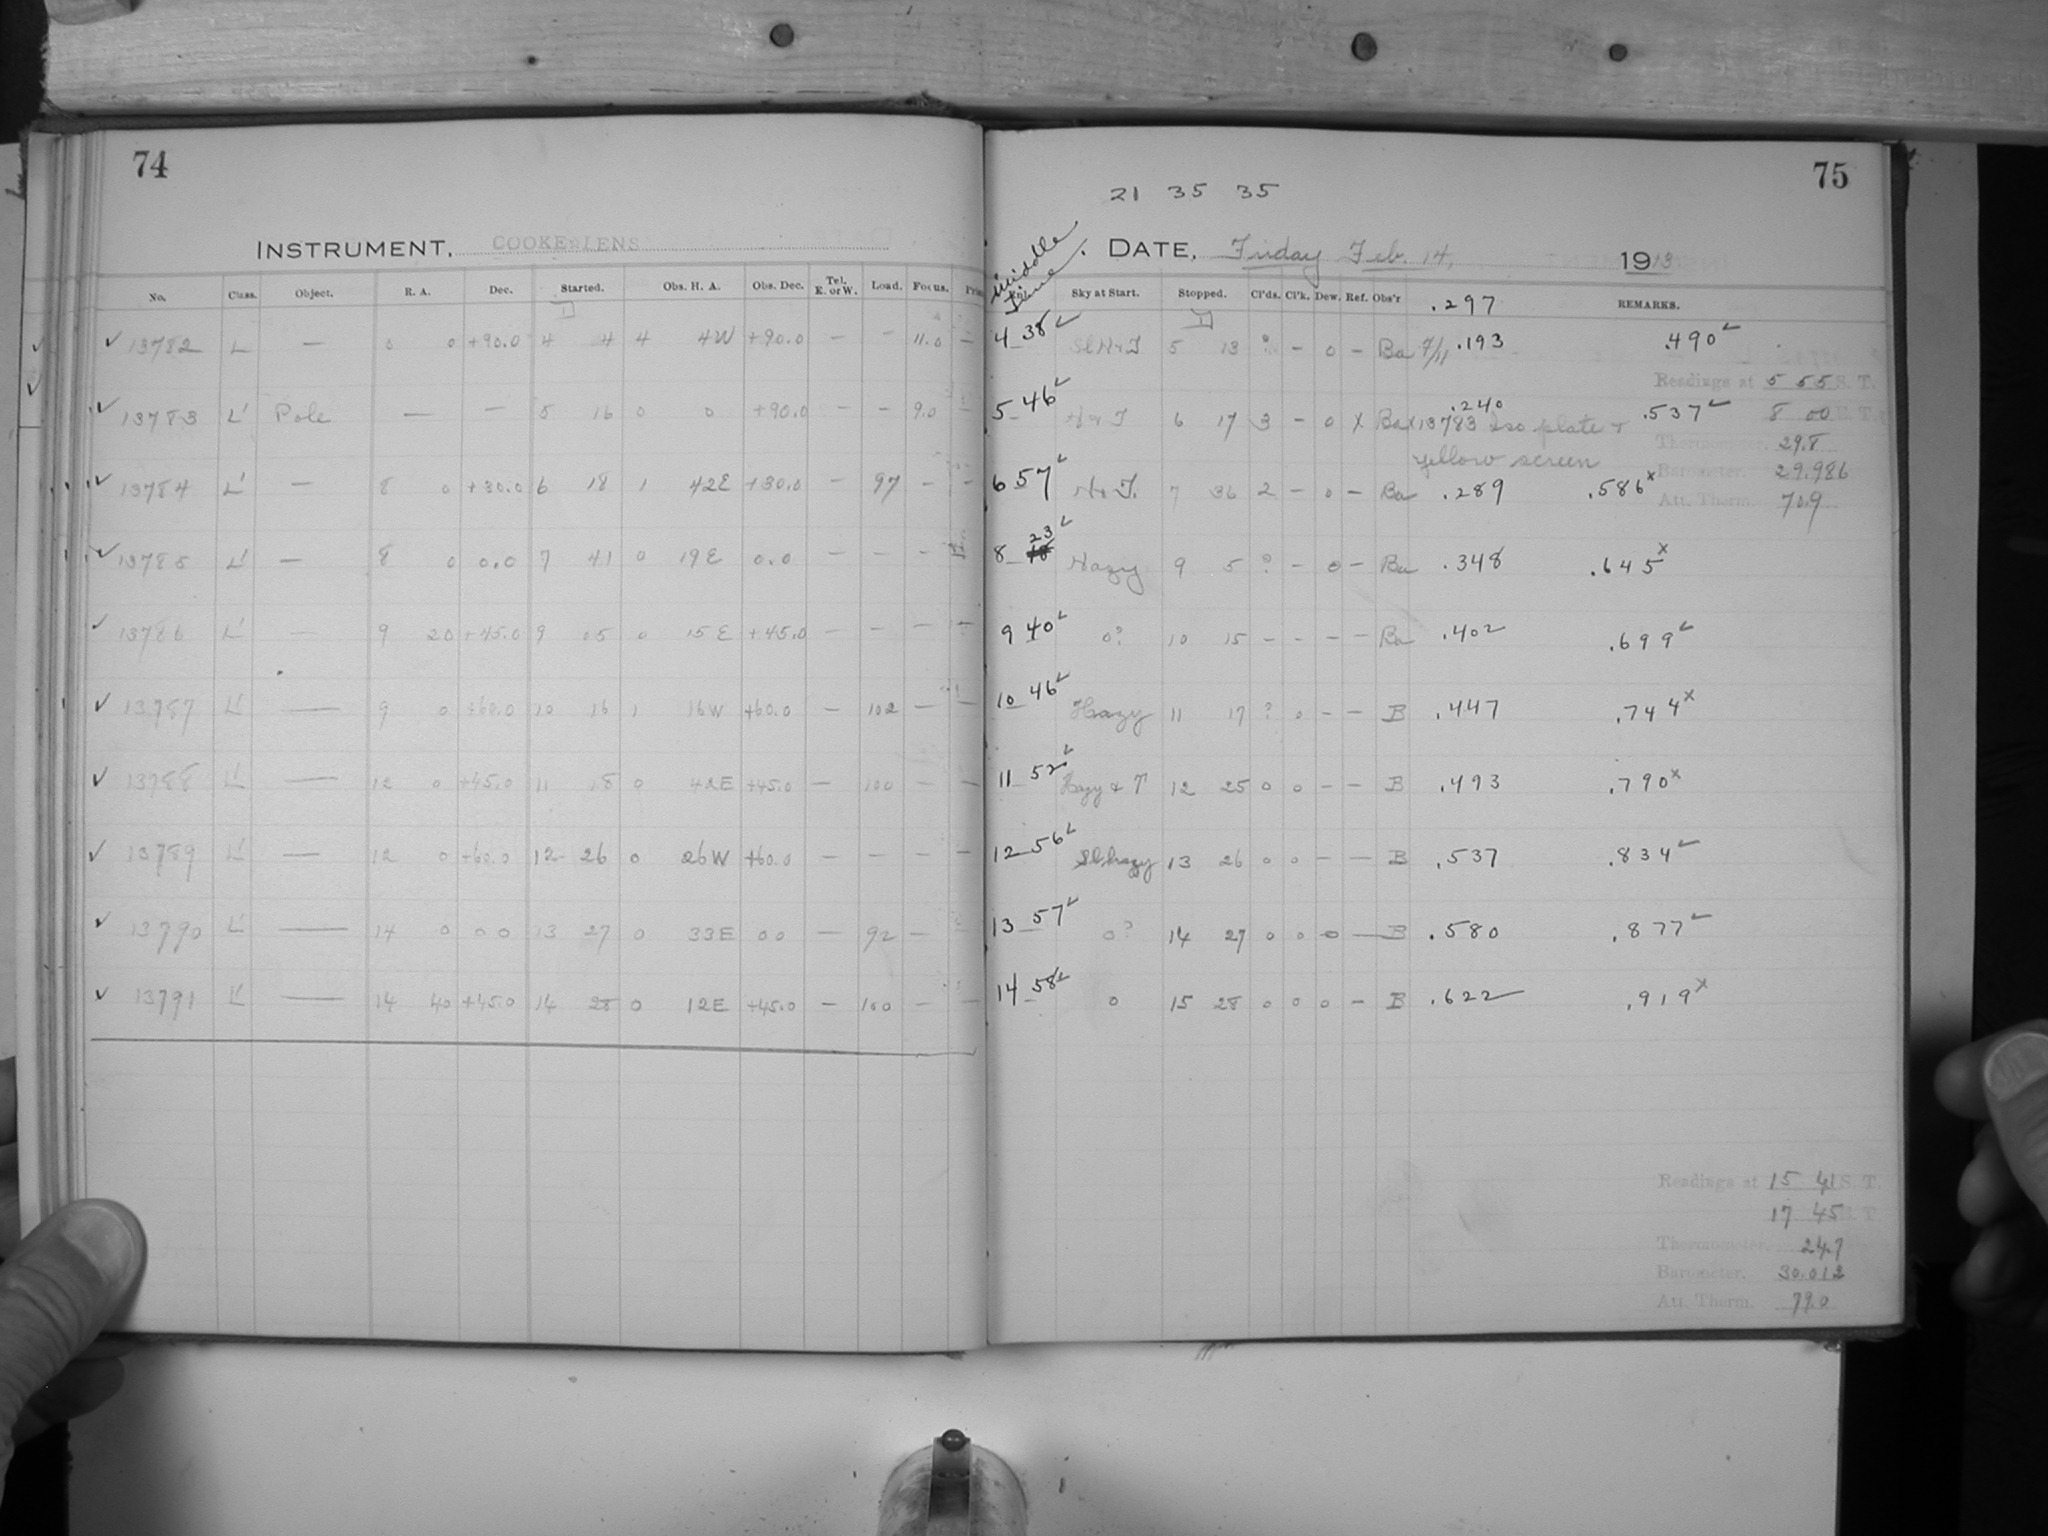 74
INSTRUMENT, COOKE LENS
No. Class. Object. R. A. Dec. Started. Obs. H. A. Obs. Dec. Tel. E. or W. Load. Focus.
✓ 13782 L — 0 0 +90.0 4 4 4 4W +90.0 — - 11.0 —
✓ 13783 L' Pole — — 5 16 0 0 +90.0 - - 9.0 —
✓ 13784 L' — 8 0 +30.0 6 18 1 42E +30.0 — 97 - -
✓ 13785 L' — 8 0 0.0 7 41 0 19E 0.0 — - -
✓ 13786 L' — 9 20 +45.0 9 05 0 15E +45.0 — - - -
✓ 13787 L' — 9 0 +60.0 10 16 1 16W +60.0 — 102 — -
✓ 13788 L' — 12 0 +45.0 11 18 0 42E +45.0 — 100 - —
✓ 13789 L' — 12 0 +60.0 12 26 0 26W +60.0 — - - —
✓ 13790 L' — 14 0 0 0 13 27 0 33E 0 0 — 92 — -
✓ 13791 L' — 14 40 +45.0 14 28 0 12E +45.0 — 100 - —
75
21 35 35
Middle Time
DATE, Friday Feb. 14, 1913
Sky at Start. Stopped. Cl'ds. Cl'k. Dew. Ref. Obs'r .297 REMARKS.
4 38 ✓ Sl H & T 5 13 ? - 0 - Ba .193 .490 ✓
Readings at 5 55 S. T.
5 46 ✓ H & T 6 17 3 - 0 x Ba .240 .537 ✓ 8 00 E. T.
x13783 Iso plate & yellow screen
Thermometer. 29.8
Barometer. 29.986
6 57 ✓ H & T. 7 36 2 - 0 - Ba .289 .586 x
Att. Therm. 70.9
8 23 ✓ Hazy 9 5 ? - 0 - Ba .348 .645 x
9 40 ✓ 0? 10 15 - - - - Ba .402 .699 ✓
10 46 ✓ Hazy 11 17 ? 0 - - B .447 .744 x
11 52 ✓ Hazy & T 12 25 0 0 - - B .493 .790 x
12 56 ✓ Sl hazy 13 26 0 0 - - B .537 .834 ✓
13 57 ✓ 0? 14 27 0 0 0 — B .580 .877 ✓
14 58 ✓ 0 15 28 0 0 0 - B .622 .919 x
Readings at 15 41 S. T.
17 45 E. T.
Thermometer. 24.7
Barometer. 30.012
Att. Therm. 79.0